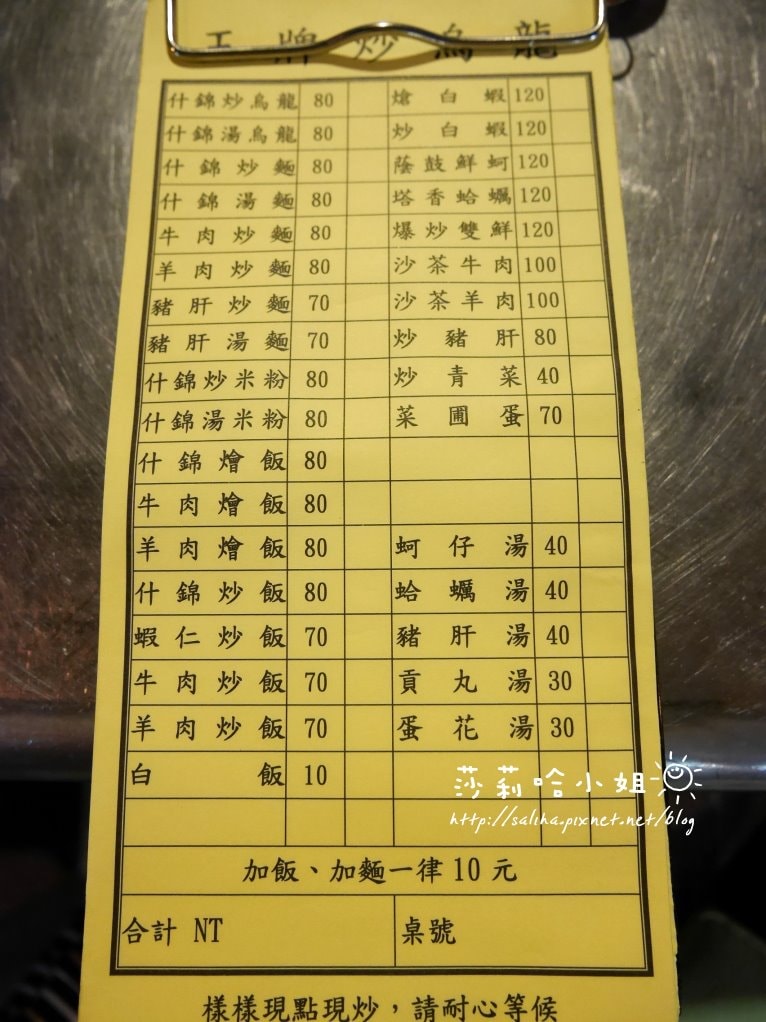 王牌炒烏龍
什錦炒烏龍 80 熗白蝦 120
什錦湯烏龍 80 炒白蝦 120
什錦炒麵 80 蔭鼓鮮蚵 120
什錦湯麵 80 塔香蛤蠣 120
牛肉炒麵 80 爆炒雙鮮 120
羊肉炒麵 80 沙茶牛肉 100
豬肝炒麵 70 沙茶羊肉 100
豬肝湯麵 70 炒豬肝 80
什錦炒米粉 80 炒青菜 40
什錦湯米粉 80 菜圃蛋 70
什錦燴飯 80
牛肉燴飯 80
羊肉燴飯 80 蚵仔湯 40
什錦炒飯 80 蛤蠣湯 40
蝦仁炒飯 70 豬肝湯 40
牛肉炒飯 70 貢丸湯 30
羊肉炒飯 70 蛋花湯 30
白飯 10
莎莉哈小姐
http://saliha.pixnet.net/blog
加飯、加麵一律10元
合計 NT 桌號
樣樣現點現炒，請耐心等候